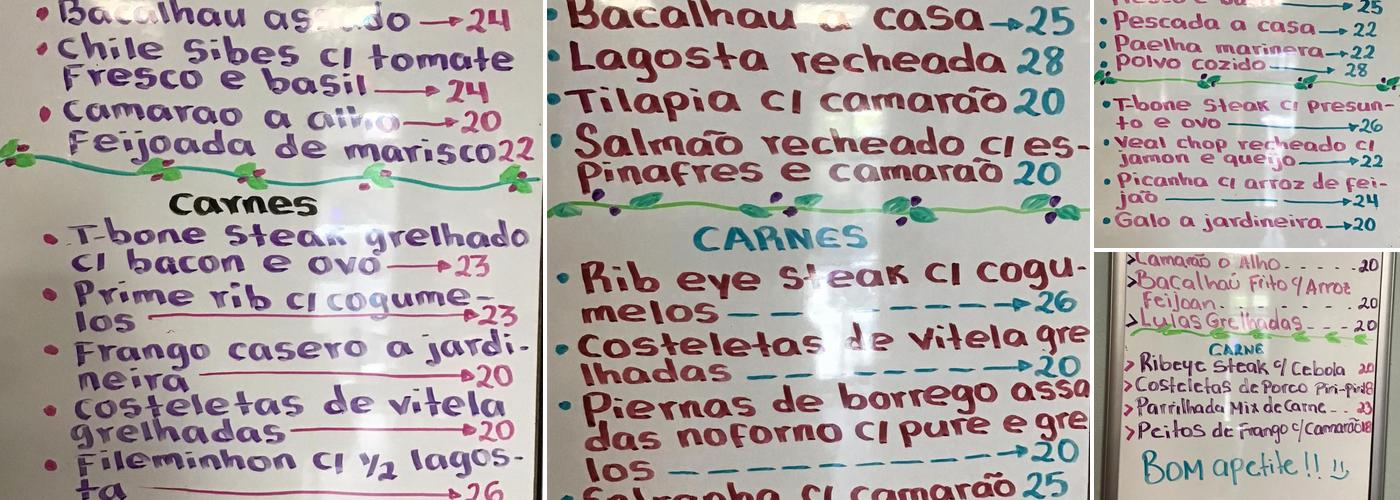 • Bacalhau assado → 24
• Chile Sibes c/ tomate
Fresco e basil → 24
• Camarao a alho → 20
Feijoada de marisco 22
Carnes
• T-bone Steak grelhado
c/ bacon e ovo → 23
• Prime rib c/ cogume-
los → 23
• Frango casero a jardi-
neira → 20
• Costeletas de vitela
grelhadas → 20
• Fileminhon c/ 1/2 lagos-
ta → 26
Bacalhau a casa → 25
• Lagosta recheada 28
• Tilapia c/ camarão 20
• Salmão recheado c/ es-
pinafres e camarão 20
CARNES
• Rib eye Steak c/ cogu-
melos → 26
• Costeletas de vitela gre
lhadas → 20
• Piernas de borrego assa
das noforno c/ pure e gre
los → 20
c/ camarão 25
25
• Pescada a casa → 22
• Paelha marinera → 22
• Polvo cozido → 28
• T-bone Steak c/ Presun-
to e ovo → 26
• Veal chop recheado c/
jamon e queijo → 22
• Picanha c/ arroz de fei-
jao → 24
• Galo a jardineira → 20
> Camarão o Alho - - - - 20
> Bacalhau Frito c/ Arroz
Feijoan - - - - 20
> Lulas Grelhadas - - - 20
CARNE
> Ribeye Steak c/ Cebola 20
> Costeletas de Porco Piri-piri 18
> Parrilhada Mix de Carne - - 23
> Peitos de Frango c/ Camarão 18
BOM apetite!!